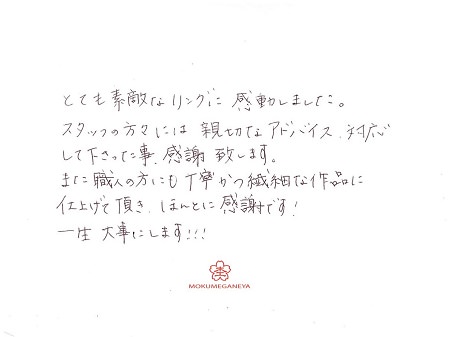 とても素敵なリングに感動しました。
スタッフの方々には親切なアドバイス、対応
して下さった事、感謝致します。
また職人の方にも丁寧かつ繊細な作品に
仕上げて頂き、ほんとに感謝です!
一生大事にします!!!
MOKUMEGANEYA